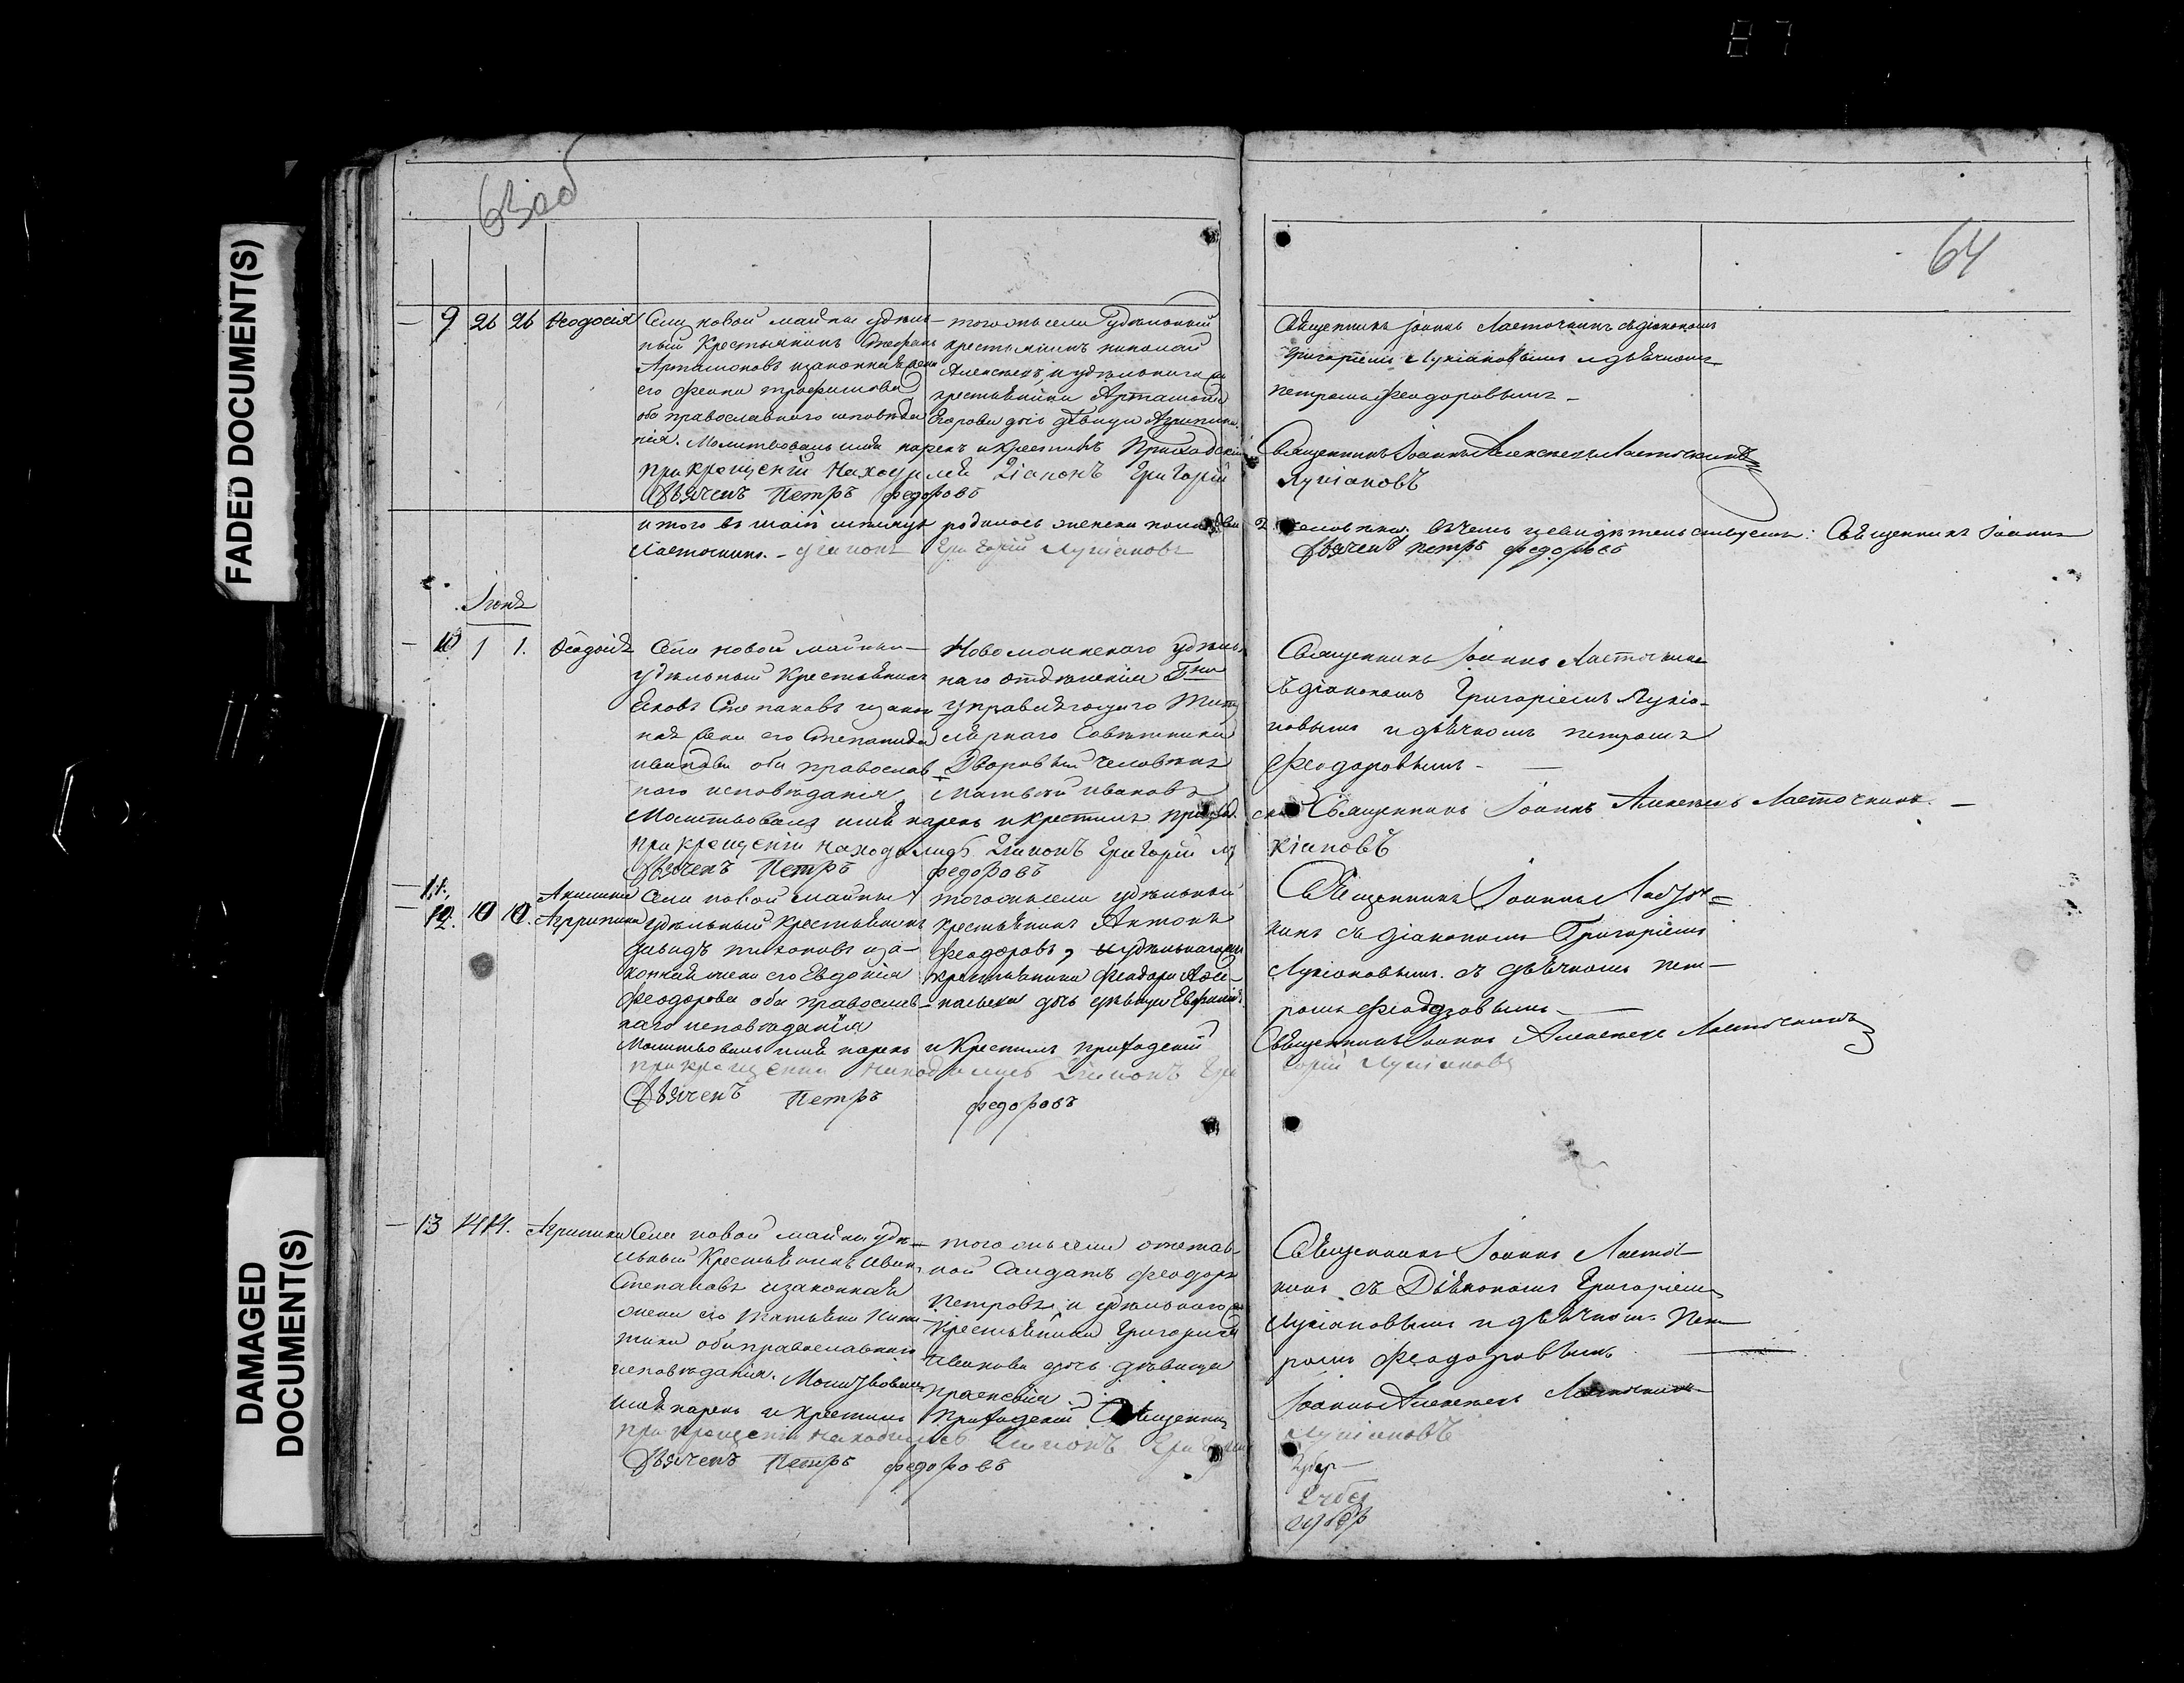 87
FADED DOCUMENT(S)
DAMAGED
DOCUMENT(S)
63 об
64
9 26 26 Ѳеодосія
Села новой майны удѣль-
ный Крестьянинъ Стефанъ
Артамоновъ изаконная жена
его Фекла трофимова
оба православнаго исповѣда
нія. Молитвовалъ имя нарекъ икрестилъ Приходскій
при крещеніи Находились Діаконъ Григорій
Дьячекъ Петръ Федоровъ
тогожъ села Удѣльный
крестьянинъ николай
Алексѣевъ, и удѣльнаго
крестьянина Артамона
Егорова дочь дѣвица Агрипина
Священникъ Іоаннъ Ласточкинъ съ діакономъ
Григоріемъ Лукіановымъ и дьячкомъ
петромъ Феодоровымъ
Священникъ Іоаннъ Алексѣевъ Ласточкинъ
Лукіановъ
итого въ маіѣ мѣсяцѣ родилось женска пола два
2 человѣка. въ чемъ и свидѣтельствуемъ: Священникъ Іоаннъ
Ласточкинъ. Діаконъ Григорій Лукіановъ
Дьячекъ петръ федоровъ
Іюнь
10 1 1. Ѳеодоръ
Села новой майны
удѣльный Крестьянинъ
Яковъ Степановъ изакон
ная жена его Степанида
иванова оба православ
наго исповѣданія
Молитвовалъ имя нарекъ икрестилъ приход
при крещеніи находились Діаконъ Григорій Лу
Дьячекъ Петръ федоровъ
Новомаинскаго удѣль
наго отдѣленія Гна
управляющаго Титу
лярнаго Совѣтника
Дворовый человѣкъ
Матвѣй ивановъ
Священникъ Іоаннъ Ласточкинъ
съ діакономъ Григоріемъ Лукіа-
новымъ и дьячкомъ петромъ
Феодоровымъ
скій Священникъ Іоаннъ Алексѣевъ Ласточкинъ.
кіановъ
11.
12. 10 10. Акилина
Агрипина
Села новой майны
удѣльный крестьянинъ
давидъ тихоновъ иза-
конная жена его Евдокія
Феодорова оба православ-
наго исповѣданія
Молитвовалъ имя нарекъ и Крестилъ приходскій
при крещеніи находились Діаконъ Гри
Дьячекъ Петръ федоровъ
тогожъ села удѣльный
крестьянинъ Антонъ
Феодоровъ, и удѣльнаго
крестьянина Феодора
дочь дѣвица
Священникъ Іоаннъ Ласточ-
кинъ съ діакономъ Григоріемъ
Лукіановымъ. съ дьячкомъ пет-
ромъ Феодоровымъ
Священникъ Іоаннъ Алексѣевъ Ласточкинъ
горій Лукіановъ
13 14 14. Агрипина
Села новой майны удѣ-
льный Крестьянинъ иванъ
Степановъ изаконная
жена его Татьяна
оба православнаго
исповѣданія. Молитвовалъ
имя нарекъ и крестилъ Приходскій Священникъ
при крещеніи находились Діаконъ Григорій
Дьячекъ Петръ федоровъ
тогожъ села отстав
ной Солдатъ Феодоръ
Петровъ и удѣльнаго
Крестьянина Григорія
Иванова дочь дѣвица
Священникъ Іоаннъ Ласточ-
кинъ съ Діакономъ Григоріемъ
Лукіановымъ и дьячкомъ Пет
ромъ Феодоровымъ
Іоаннъ Алексѣевъ Ласточкинъ
Лукіановъ